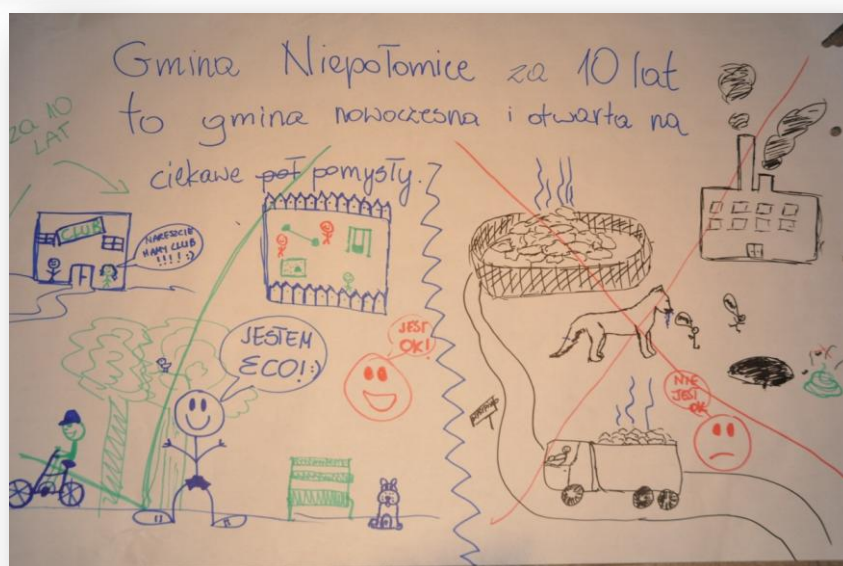 Gmina Niepołomice za 10 lat
to gmina nowoczesna i otwarta na
ciekawe poł pomysły.
za 10
LAT
CLUB
NARESZCIE
MAMY CLUB
!!!! :)
JESTEM
ECO! :)
JEST
OK!
NIE
JEST
OK